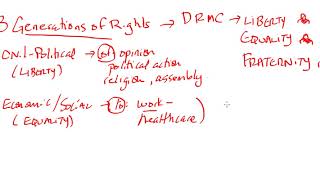 3 Generations of Rights → DRMC → LIBERTY &
EQUALITY &
FRATERNITY
Civil-Political → (of) opinion
(LIBERTY) political action
religion, assembly
Economic/Social → (to): work -
(EQUALITY) healthcare )